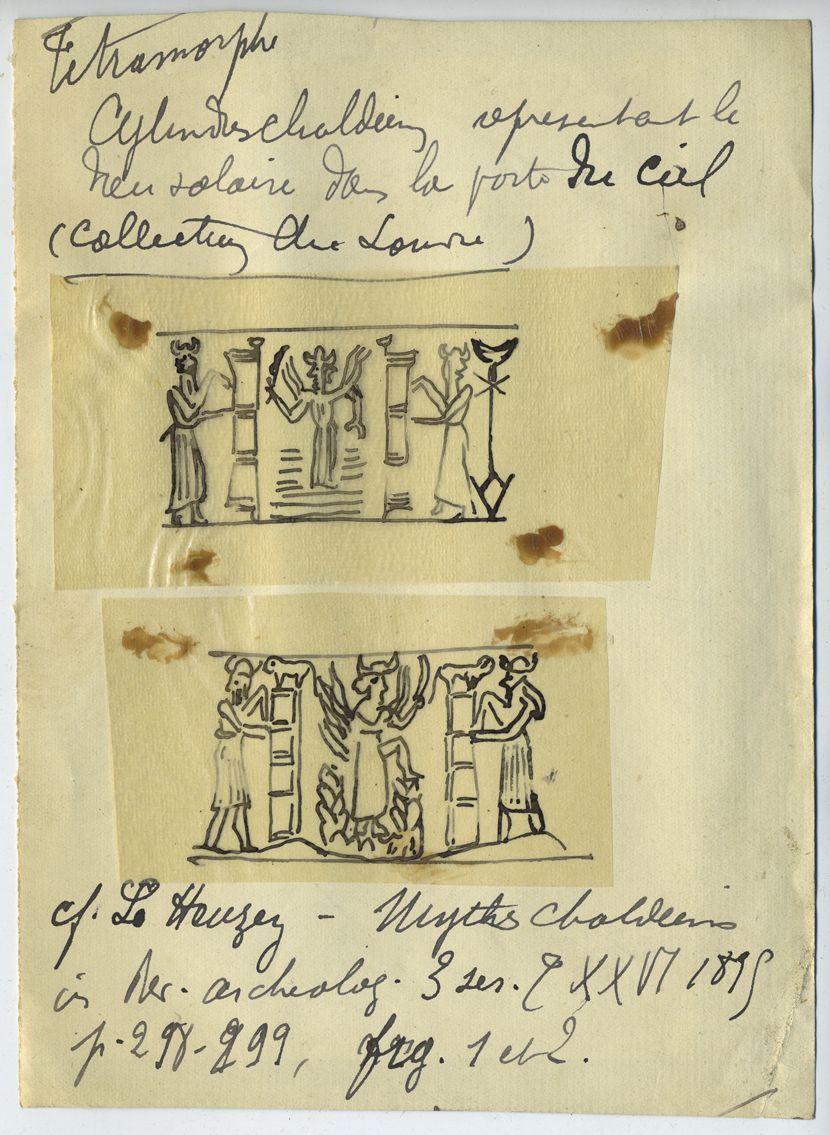 Tétramorphe
Cylindres chaldéens représentant le
Dieu solaire dans la porte du ciel
(Collection du Louvre)
cf. L. Heuzey - Mythes chaldéens
in Rev. archeolog. 3 ser. T XXVI 1895
p. 298-299, fig. 1 et 2.